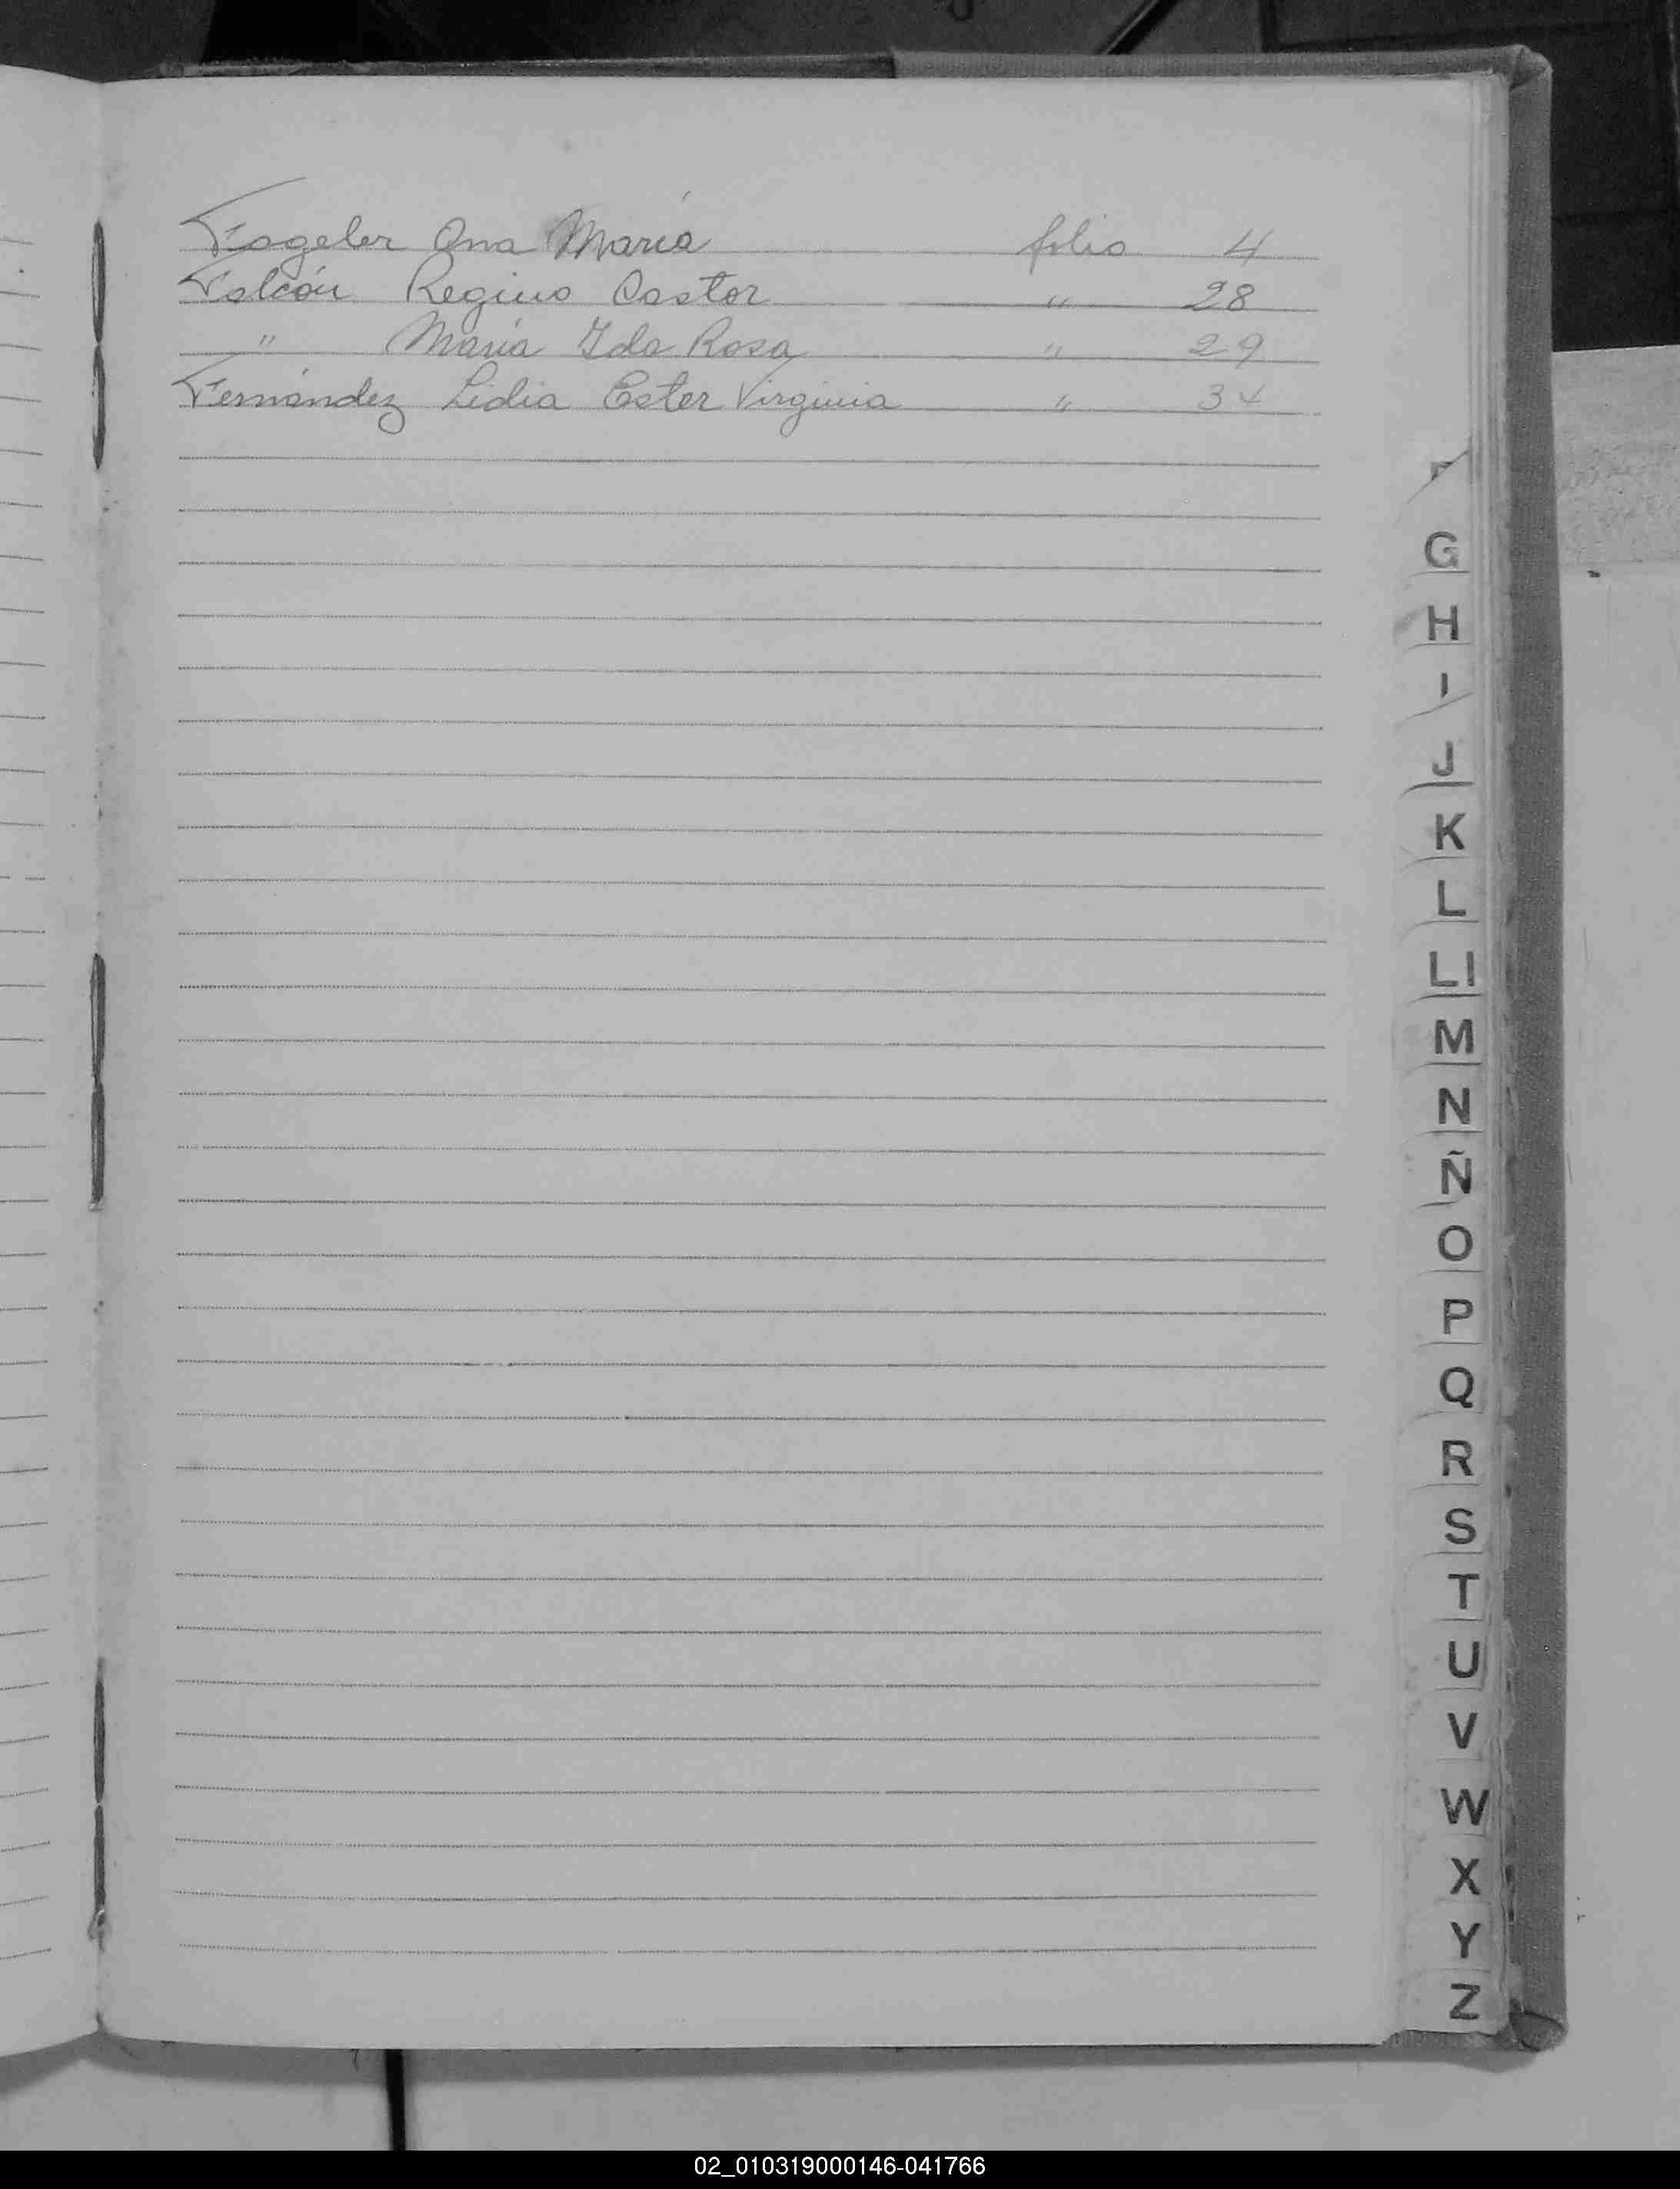 Fogeler Ana María folio 4
Falcón Regino Castor " 28
" María Ida Rosa " 29
Fernández Lidia Ester Virginia " 34
F
G
H
I
J
K
L
Ll
M
N
Ñ
O
P
Q
R
S
T
U
V
W
X
Y
Z
02_010319000146-041766